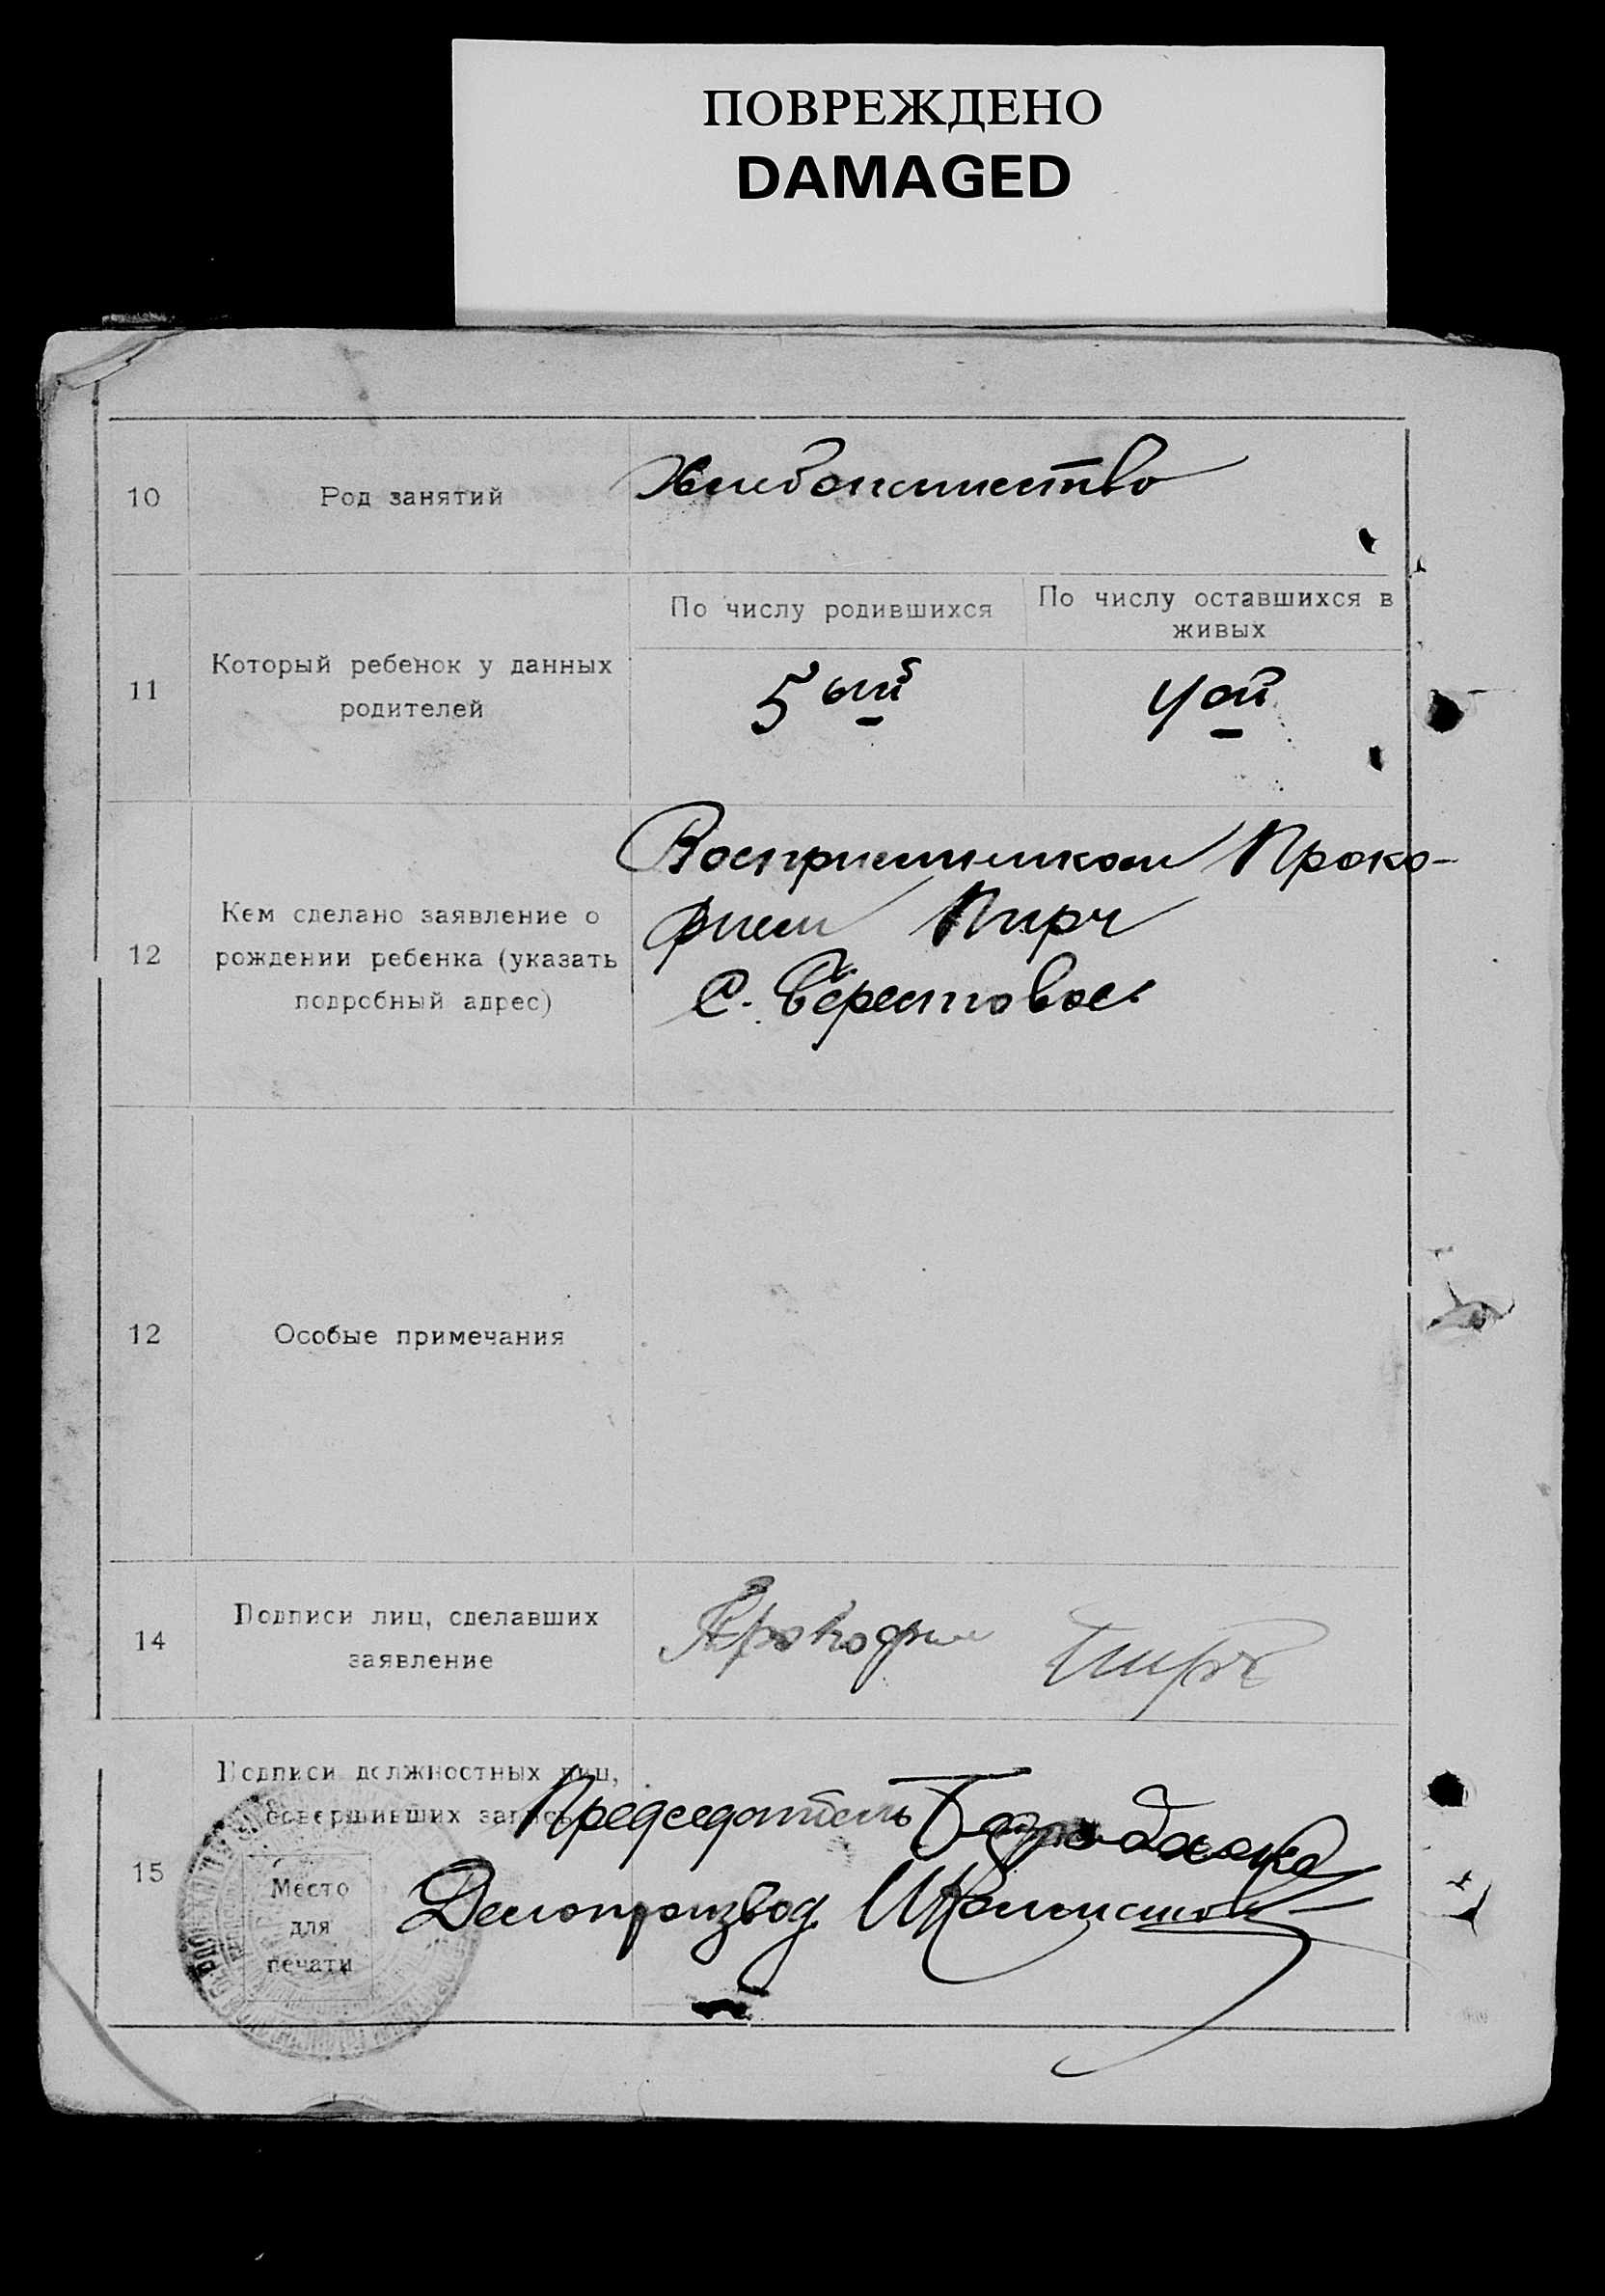 ПОВРЕЖДЕНО
DAMAGED
10
Род занятий
Хлебопашество
11
Который ребенок у данных
родителей
По числу родившихся
По числу оставшихся в
живых
5ый
4ой
12
Кем сделано заявление о
рождении ребенка (указать
подробный адрес)
Восприемником Проко-
фием Пирч
с. Берестовое
12
Особые примечания
14
Подписи лиц, сделавших
заявление
Прокофий Пирч
15
Подписи должностных лиц,
совершивших запись
Председатель
Делопроизвод.
Место
для
печати